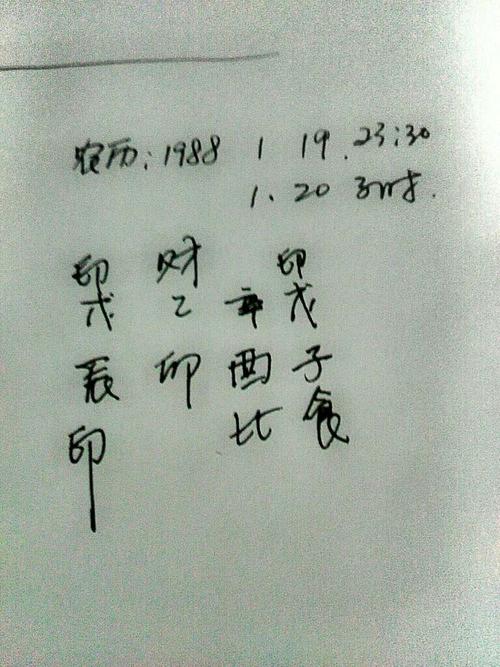 农历:1988 1 19. 23:30
1. 20 子时.
印 财 印
戊 乙 辛 戊
辰 卯 酉 子
印 比 食